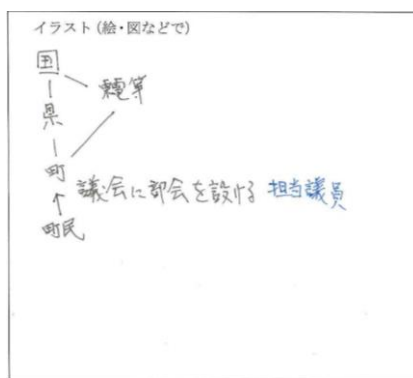 イラスト（絵・図などで）
国
東電等
県
町
議会に部会を設ける 担当議員
町民